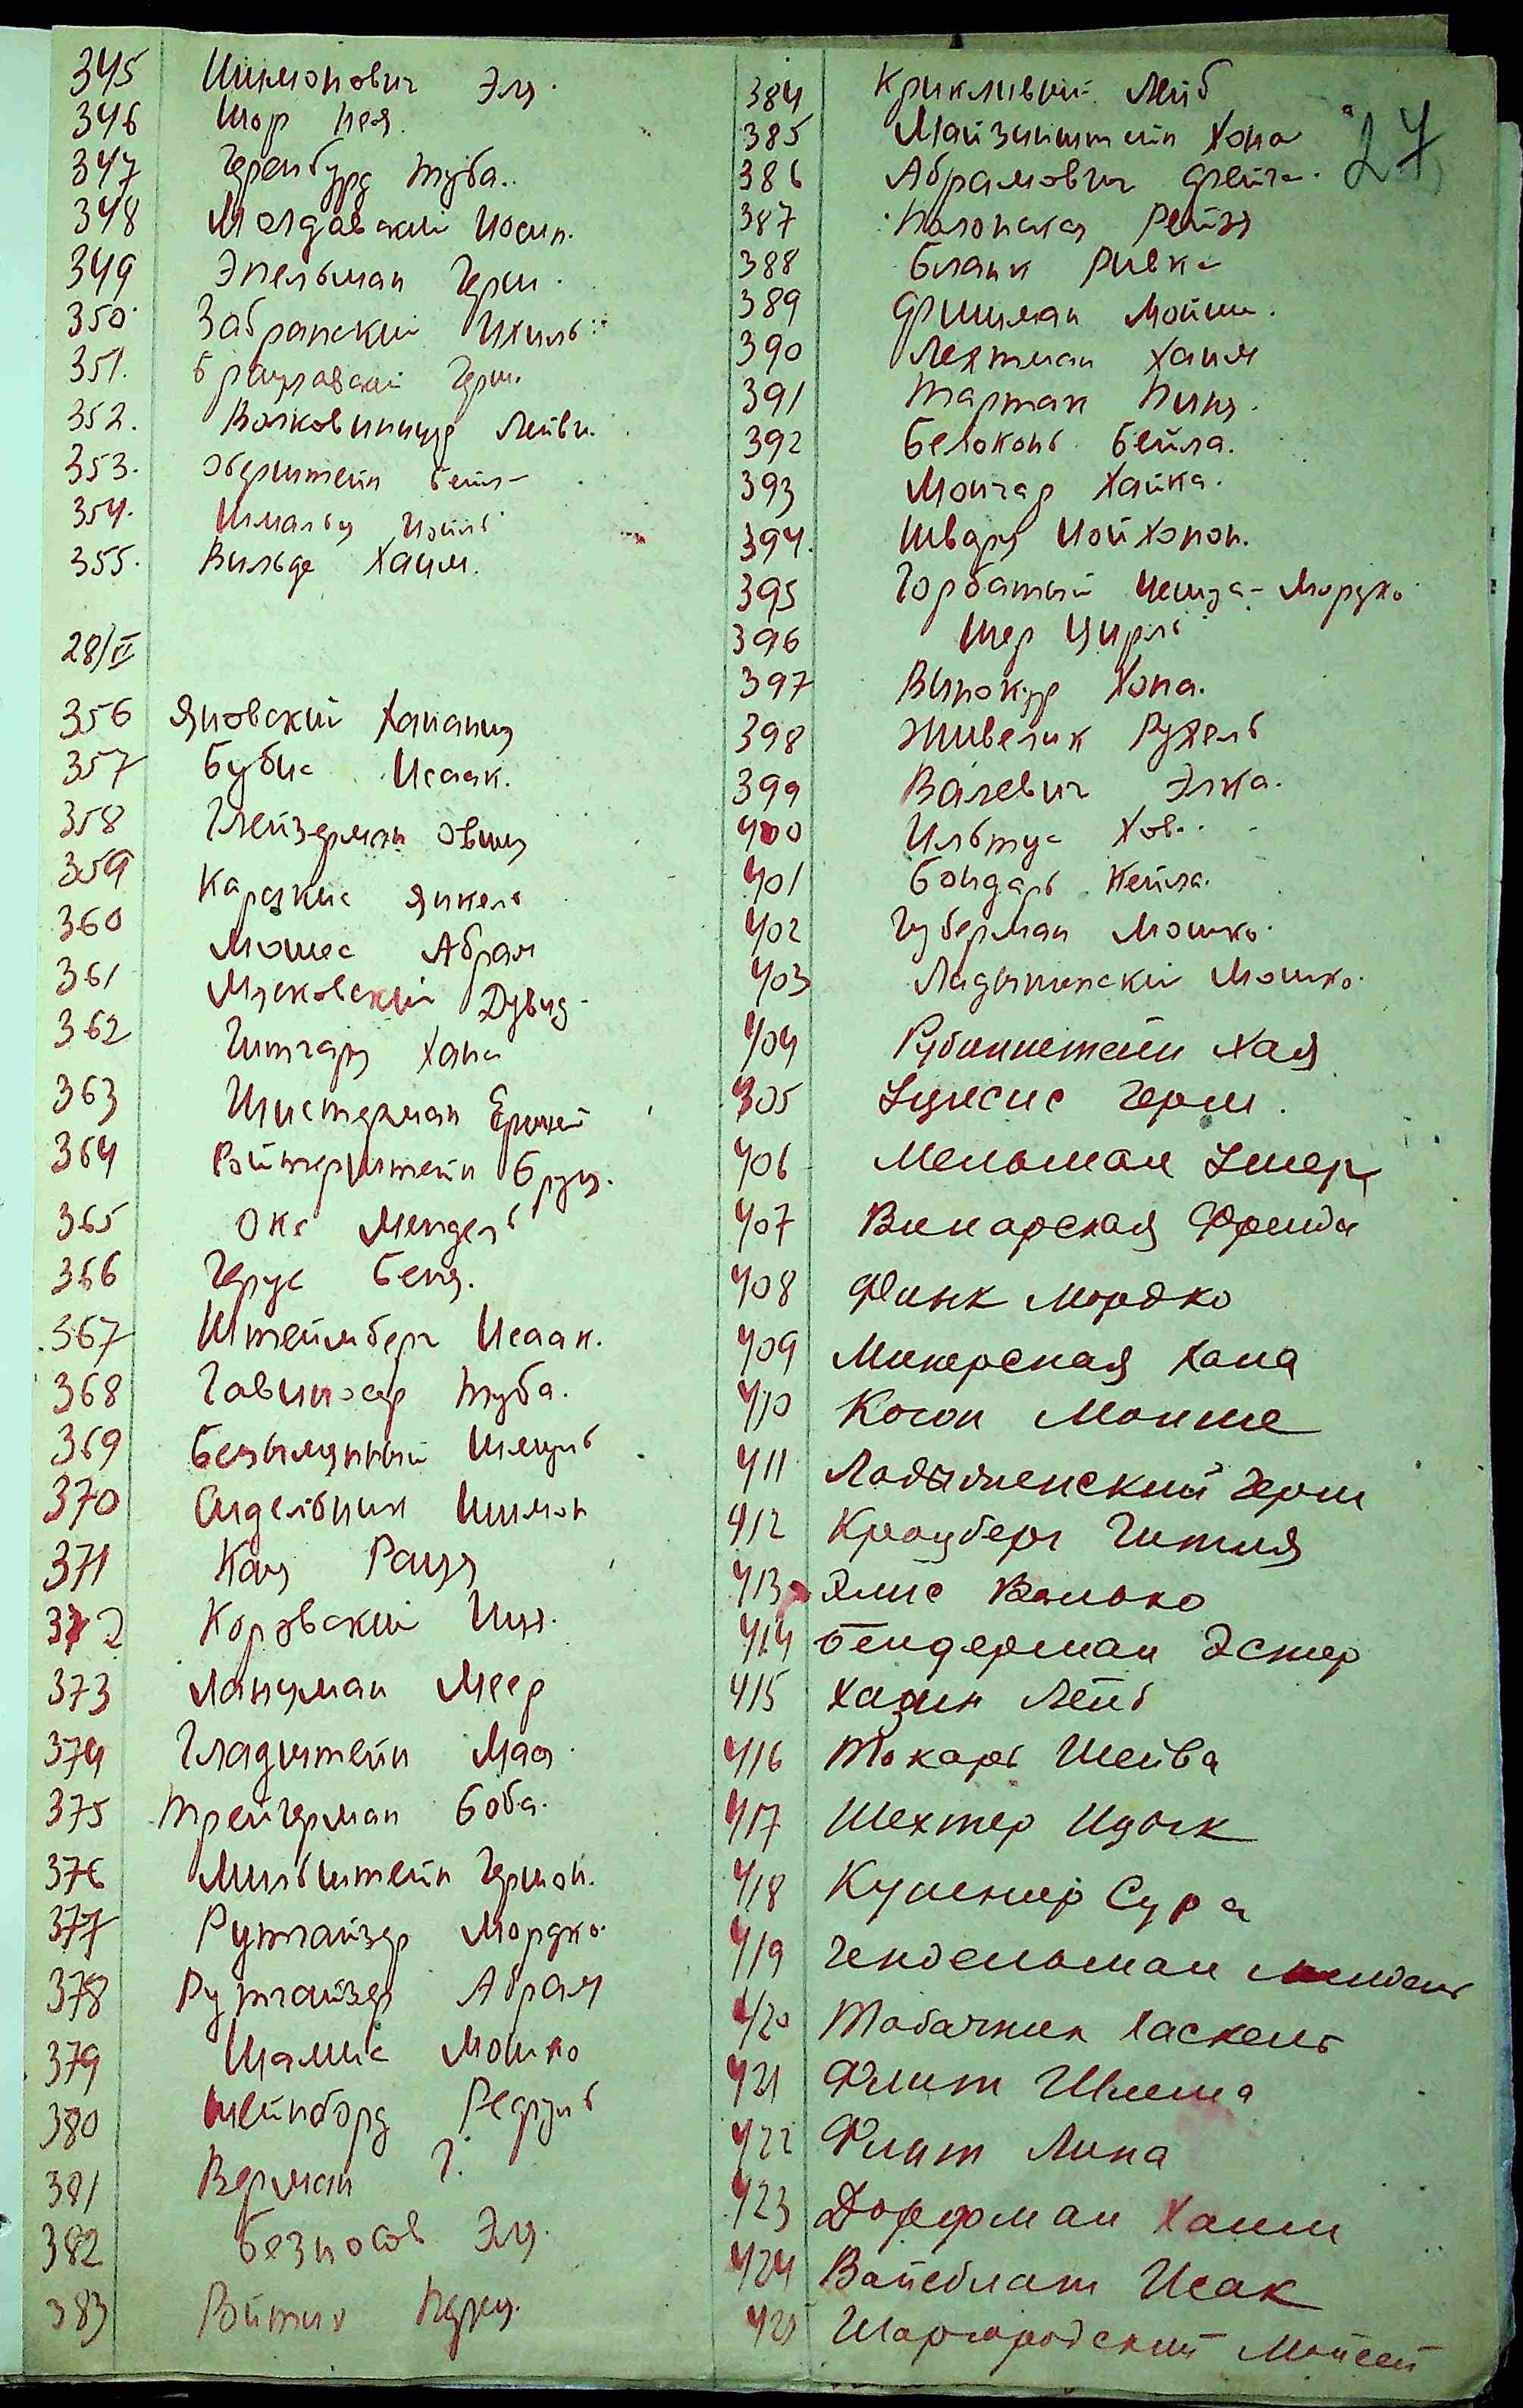 345 Шимонович Эля.
346 Шор Нея.
347 Геренбурд Туба.
348 Молдавский Иосип.
349 Эпельман Герш.
350. Забранский Ихиль.
351. Брацлавский Герш.
352. Волковиницер Лейви.
353. Оберштейн Бейл
354. Шмальц Иойль
355. Вильде Хаим.
28/VI
356 Яновский Ханания
357 Бубис Исаак.
358 Глейзерман Овшия
359 Карацкис Янкель
360 Мошес Абрам
361 Мясковский Дувид
362 Гитгарц Хана
363 Шистерман Ершей
364 Ройтерштейн Бруц.
365 Окс Мендель
366 Герус Бенц.
367 Штеймберг Исаак.
368 Говинзер Туба.
369 Безымянный Шмуль
370 Сидельник Шимон
371 Кац Раця
372 Коровский Ицк.
373 Ланцман Меер
374 Гладштейн Мая.
375 Трейгерман Боба.
376 Мильштейн Гершон.
377 Рутгайзер Мордко.
378 Рутгайзер Абрам
379 Шамис Мошко
380 Шейнборд Рефуль
381 Верман Г.
382 Безносов Эля.
383 Войтих
27
384 Крикливый Лейб
385 Майзинштейн Хона
386 Абрамович Фейга.
387 Полонская Рейзя
388 Бланк Ривка
389 Фишман Мойше.
390 Лехтман Хаим
391 Тартак Пиня.
392 Белоконь Бейла.
393 Мончар Хайка.
394. Шварц Иойхонон.
395 Горбатый Иешуа-Мордко
396 Шер Цирль
397 Винокур Хона.
398 Живелик Рухель
399 Валевич Элка.
400 Ильтус Хова.
401 Бондарь Кейла.
402 Губерман Мошко.
403 Ладыжинский Мошко.
404 Рубинштейн Хая
305 Зусис Герш.
406 Мельман Умер
407 Винарская Фрида
408 Финк Мордко
409 Миперская Хана
410 Когон Моише
411 Ладыженский Герш
412 Кроцберг Гитля
413 Элис Волько
414 Бендерман Эстер
415 Хазин Лейб
416 Токарь Шейва
417 Шехтер Ицык
418 Кушнир Сура
419 Гендельман Мендель
420 Табачник Хаскель
421 Флит Шлема
422 Флит Липа
423 Дорфман Хаим
424 Вайсблат Исак
425 Шаргородский Мойсей